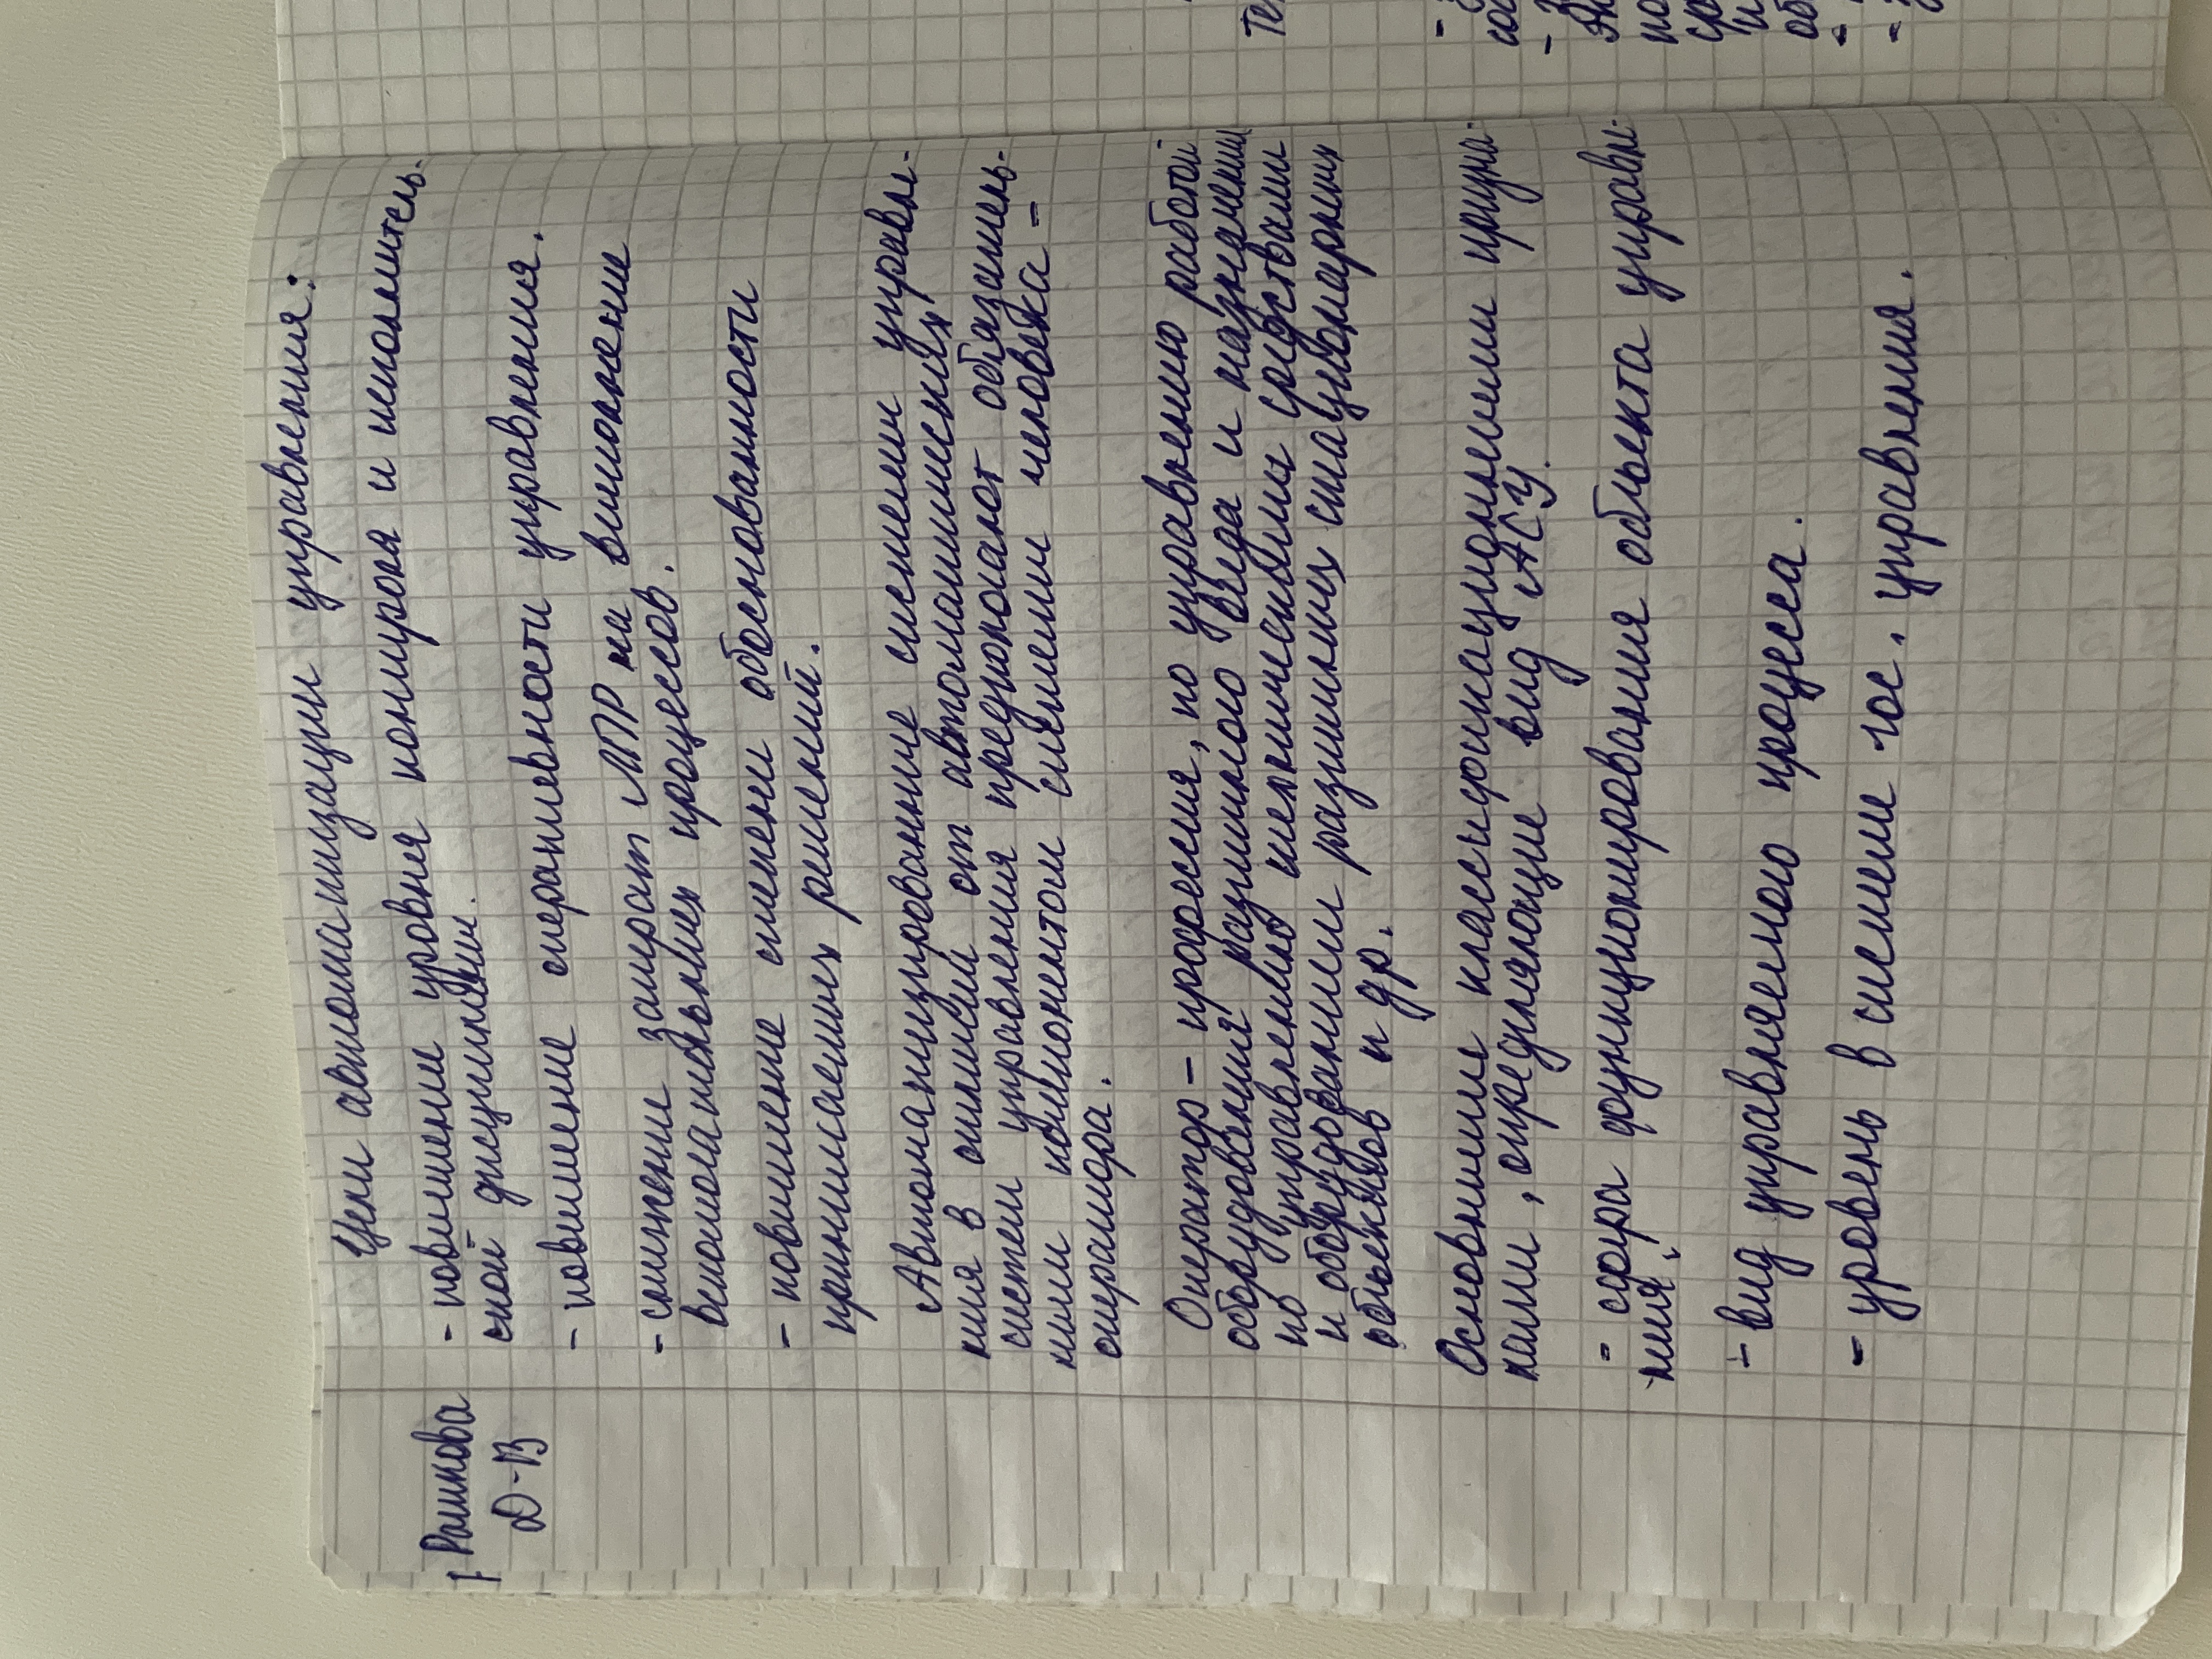 Рашкова
Д-В
Цели автоматизации управления:
- повышение уровня контроля и исполнитель-
ской дисциплины.
- повышение оперативности управления.
- снижение затрат ЛПР на выполнение
вспомогательных процессов.
- повышение степени обоснованности
принимаемых решений.
Автоматизированные системы управле-
ния в отличии от автоматических
систем управления предполагают обязатель-
ным компонентом системы человека =
оператора.
Оператор - профессия, по управлению работой
оборудования различного вида и назначения
по управлению механическими средствами
и оборудованием различных стационарных
объектов и др.
Основными классификационными призна-
ками, определяющие вид АСУ.
- сфера функционирования объекта управле-
ния;
- вид управляемого процесса.
- уровень в системе гос. управления.